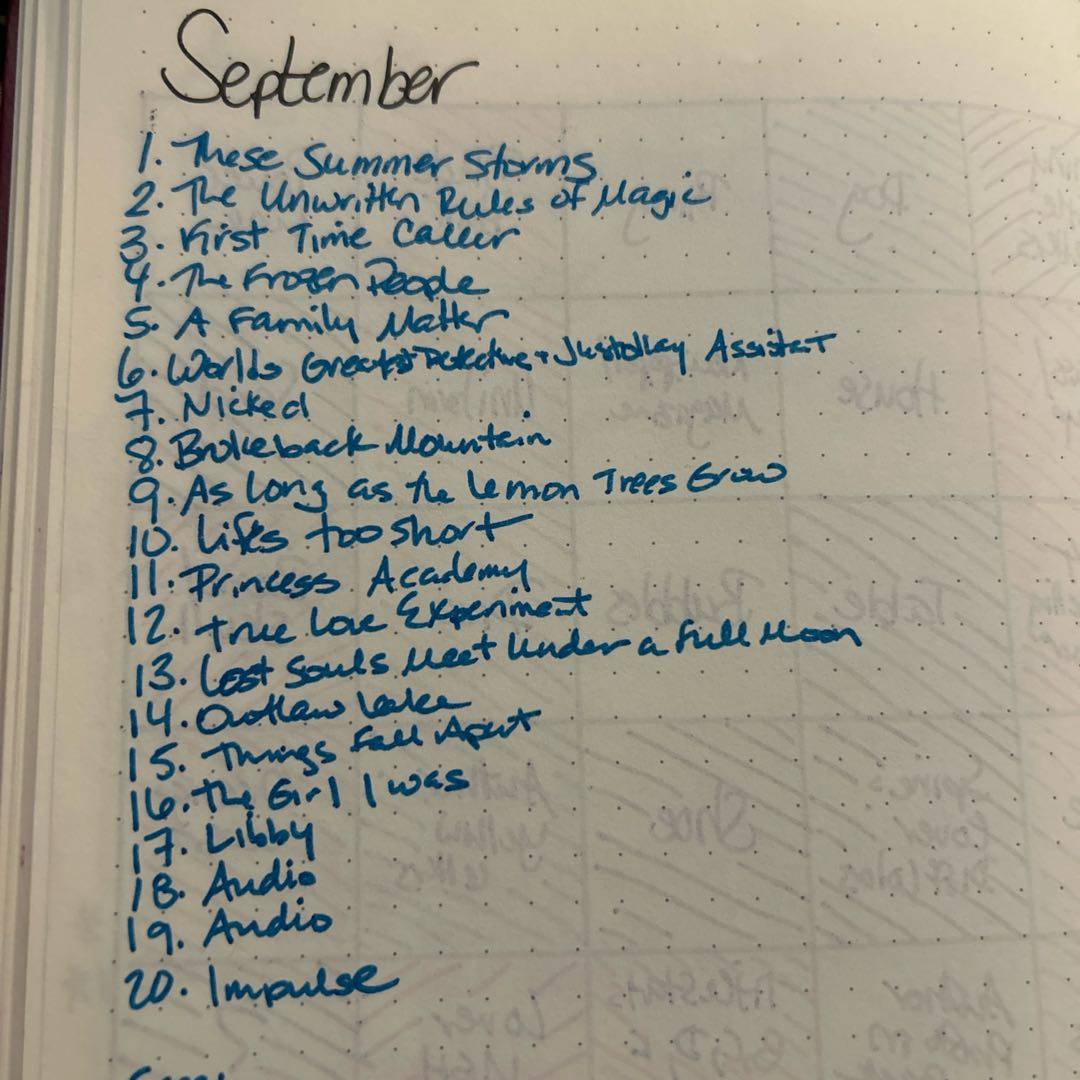 September
1. These Summer Storms
2. The Unwritten Rules of Magic
3. First Time Caller
4. The Frozen People
5. A Family Matter
6. Worlds Greatest Detective + Just Okay Assistat
7. Nicked
8. Brokeback Mountain
9. As long as the Lemon Trees Grow
10. Life's too Short
11. Princess Academy
12. True Love Experiment
13. Lost Souls Meet Under a Full Moon
14. Outlaw Lake
15. Things Fall Apart
16. The Girl I was
17. Libby
18. Audio
19. Audio
20. Impulse